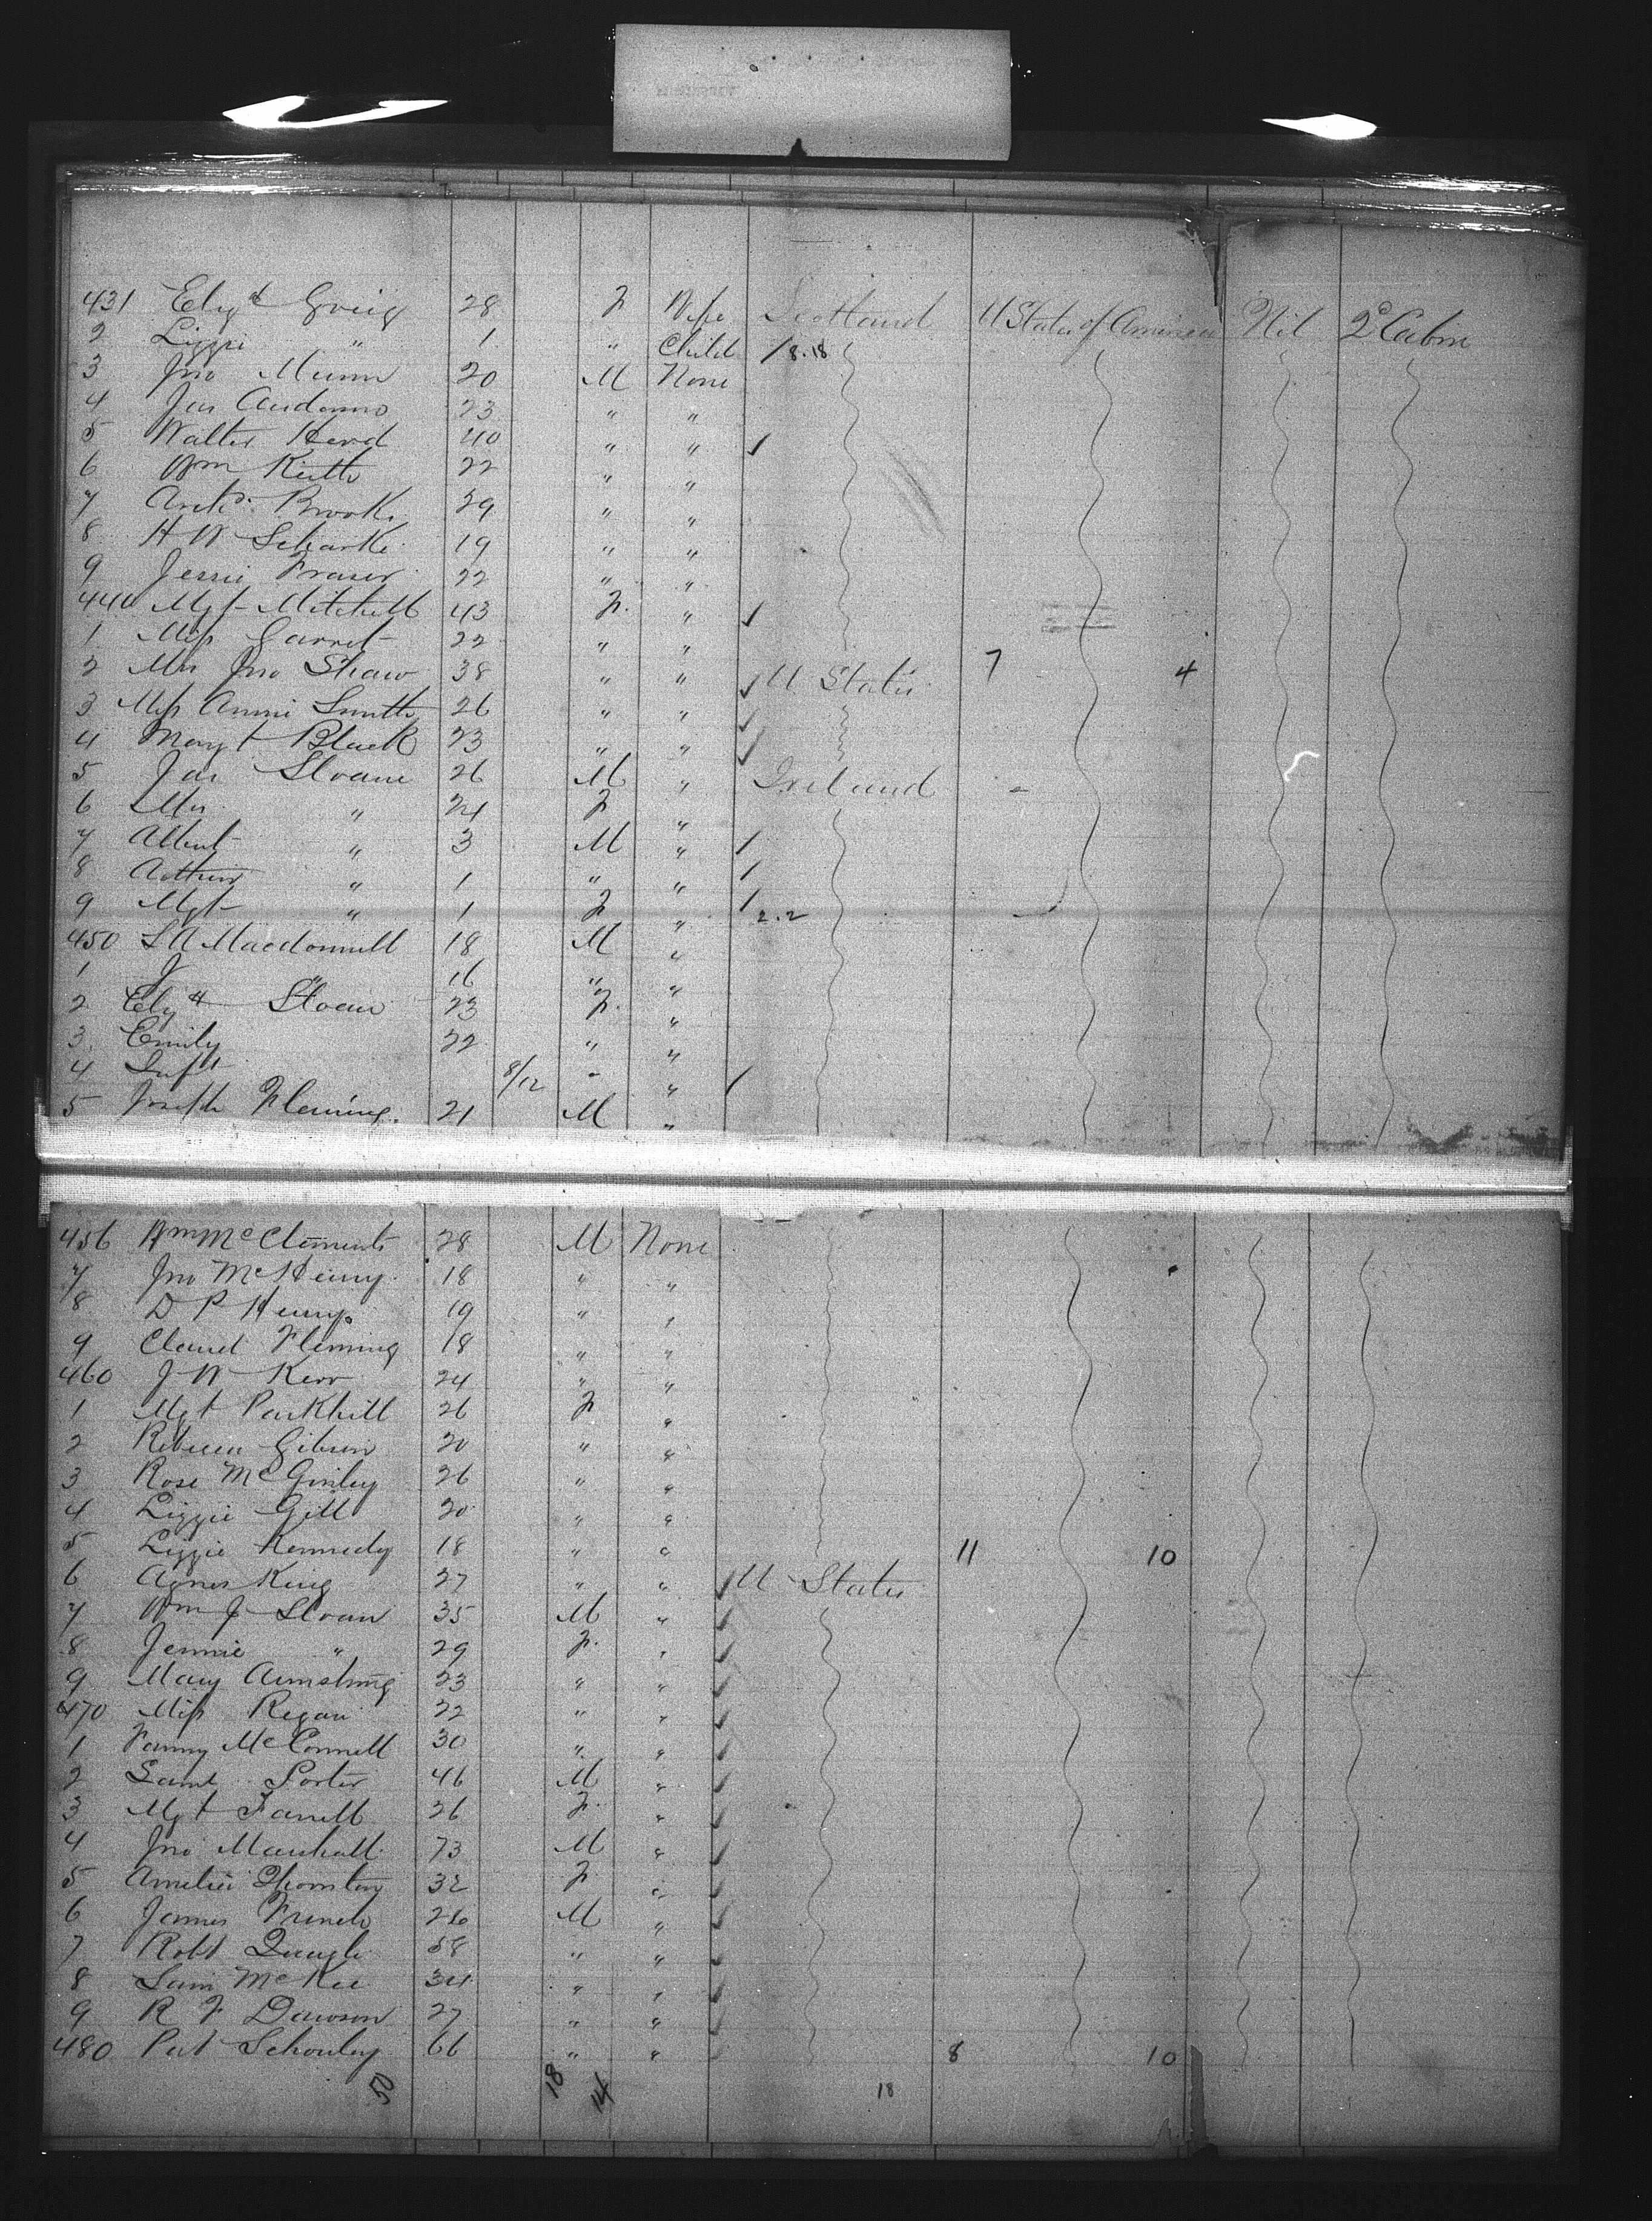 431 Elizth Greig 28 F Wife Scotland U States of America Nil 2d Cabin
2 Lizzie " 1 " Child / 8.18
3 Jno Munn 20 M None
4 Jas 23 " "
5 Walter Herd 40 " " /
6 Wm Keith 22 " "
7 Archd. Brook 29 " "
8 H W 19 " "
9 Jessie Fraser 22 " "
440 Mgt Mitchell 43 F. " /
1 Miss Garret 22 " "
2 Mrs Jno Shaw 38 " " / U States 7 4
3 Miss Annie Smith 26 " " /
4 Margt Black 23 " " /
5 Jas Sloane 26 M " Ireland
6 Mrs " 24 F "
7 Albert " 3 M " /
8 Arthur " 1 " " /
9 Mgt " 1 F " / 2.2
450 S A Macdonnell 18 M "
1 J " 16 " "
2 Elizth Sloan 23 F. "
3. Emily 22 " "
4 Inft 8/12 - " /
5 Joseph Fleming. 21 M "
456 Wm McClements 28 M None
7 Jno McHenry 18 " "
8 D P Henry 19 " "
9 Claud Fleming 18 " "
460 J W Kerr 24 " "
1 Mgt Parkhill 26 F "
2 Rebecca Gibson 20 " "
3 Rose McGinley 26 " "
4 Lizzie Gill 20 " "
5 Lizzie Kennedy 18 " " 11 10
6 Agnes King 27 " " / U States
7 Wm J Sloan 35 M " /
8 Jennie " 29 F. " /
9 Mary Armstrong 23 " " /
470 Miss Regan 22 " " /
1 Fanny McConnell 30 " " /
2 Saml Porter 46 M " /
3 Mgt Farrell 26 F. " /
4 Jno Marshall 73 M " /
5 Amelia Thornton 32 F " /
6 James French 26 M " /
7 Robt 58 " " /
8 Sam McKee 34 " " /
9 R F Dawson 27 " " /
480 Pat 66 " " / 8 10
50 18 14 18